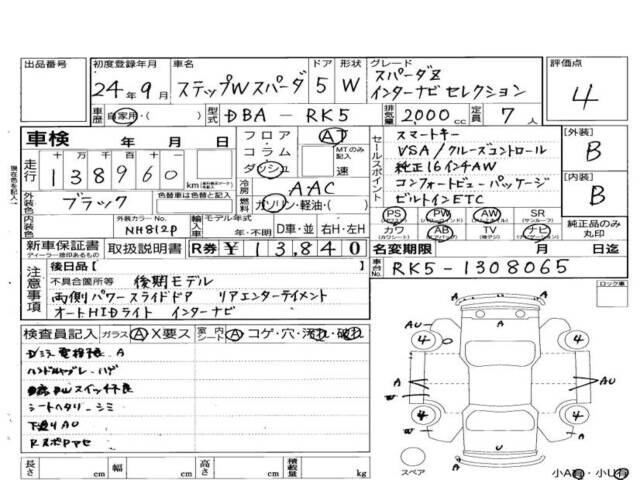 出品番号 初度登録年月 車名 ドア 形状 グレード 評価点
24年9月 ステップWスパーダ 5 W スパーダZ インターナビセレクション 4
車歴 自家用・( ) 型式 DBA - RK5 排気量 2,000cc 定員 7人
車検 年 月 日
フロア コラム ダッシュ AT MTのみ記入 速
セールスポイント
スマートキー
VSA/クルーズコントロール
純正16インチAW
コンフォートビューパッケージ
ビルトインETC
[外装] B
[内装] B
走行 十万 万 千 百 十 一
138960 km
冷房 AAC
燃料 ガソリン・軽油・( )
外装色 ブラック 色替車は色替と記入
内装色 外装カラーNo. NH812P
輸入車 モデル年式 年・不明 D車・並 右H・左H
PS PW AW SR
カワ AB TV ナビ
純正品のみ丸印
新車保証書 取扱説明書 R券 ¥13,840
ディーラー捺印あるもの
名変期限 月 日迄
車台No. RK5-1308065
注意事項 後日品[ ]
不具合箇所等 後期モデル
両側パワースライドドア リアエンターテイメント
オートHIDライト インターナビ
ロック車
検査員記入 ガラス A X要ス 室内シート A コゲ・穴・汚れ・破れ
ハンドルスレ・ハゲ
シートヘタリ・シミ
下廻りAU
AU 4 4 A A A AU W 4 4 W A U A
スペア
長さ cm 幅 cm 高さ cm 積載量 kg
小A有・小U有